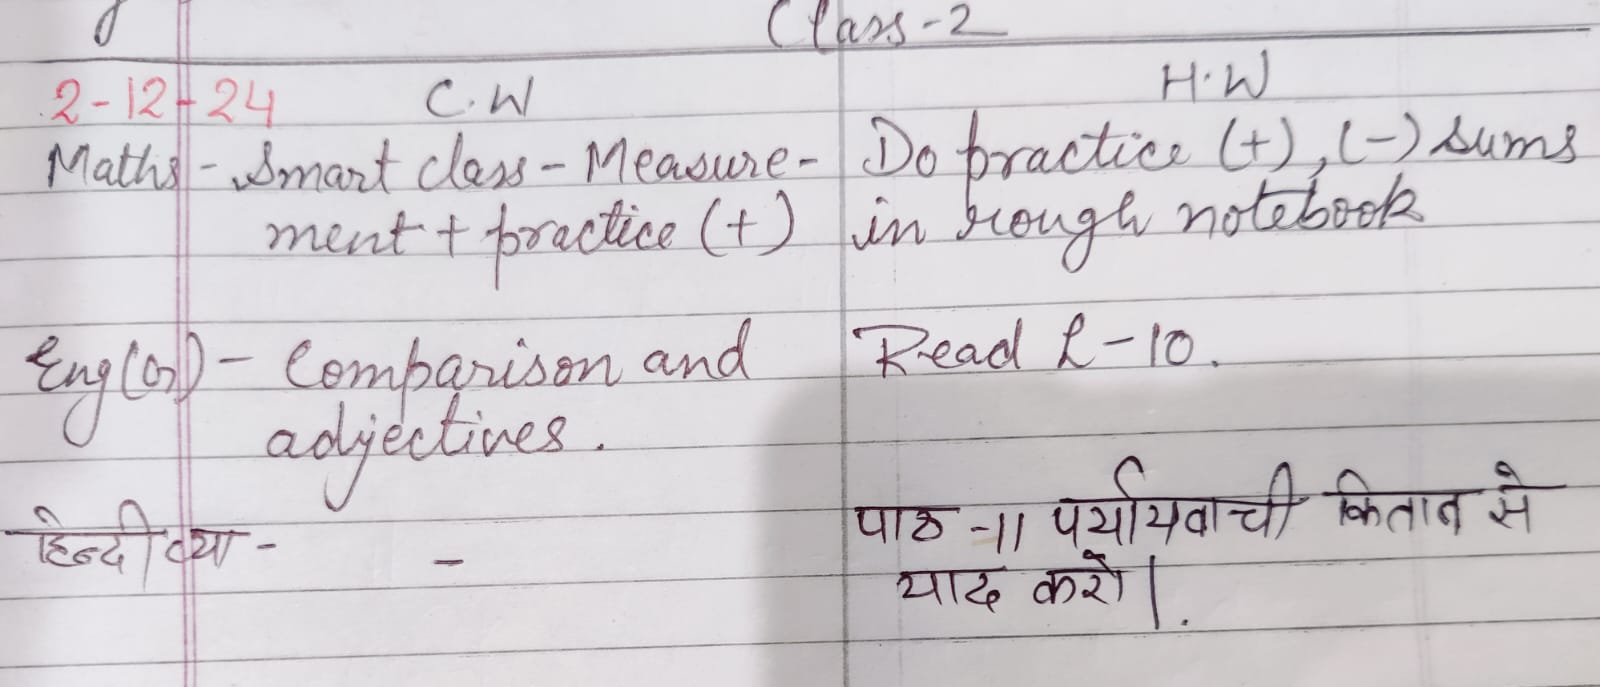 Class-2
2-12-24 C.W H.W
Maths - Smart class - Measure- Do practice (+), (-) sums
ment + practice (+) in rough notebook
Eng (Gr) - Comparison and Read L-10.
adjectives.
हिन्दी व्या - - पाठ -11 पर्यायवाची किताब से
याद करो |.